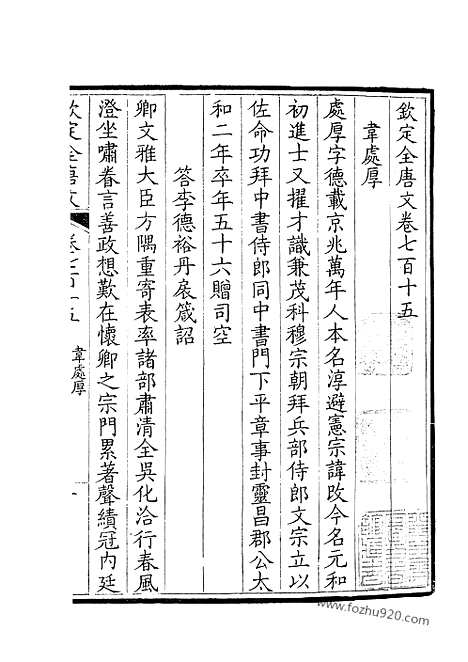 欽定全唐文卷七百十五
韋處厚
處厚字德載京兆萬年人本名淳避憲宗諱改今名元和
初進士又擢才識兼茂科穆宗朝拜兵部侍郎文宗立以
佐命功拜中書侍郎同中書門下平章事封靈昌郡公太
和二年卒年五十六贈司空
答李德裕丹扆箴詔
卿文雅大臣方隅重寄表率諸部肅清全吳化洽行春風
澄坐嘯眷言善政想歎在懷卿之宗門累著聲績冠內廷
欽定全唐文
卷七百十五
韋處厚
一
www.fozhu920.com